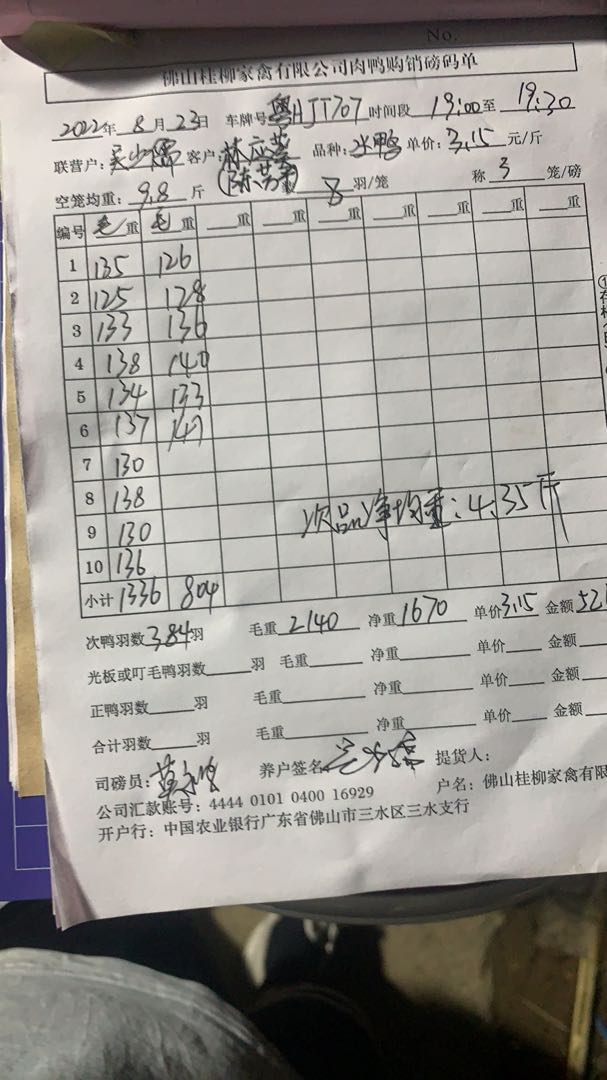 No.
佛山桂柳家禽有限公司肉鸭购销磅码单
2022年 8月23日 车牌号粤HJT707 时间段 19:00至 19:30
联营户: 客户: 林应 品种: 水鸭 单价: 3.15 元/斤
空笼均重: 9.8 斤 8 羽/笼 称 3 笼/磅
编号 毛重 毛重 重 重 重 重 重 重 重
1 135 126
2 125 128
3 133 136
4 138 140
5 134 133
6 137 141
7 130
8 138
9 130 次品净均重: 4.35斤
10 136
小计 1336 804
次鸭羽数 384 羽 毛重 2140 净重 1670 单价 3.15 金额 52
光板或叮毛鸭羽数 羽 毛重 净重 单价 金额
正鸭羽数 羽 毛重 净重 单价 金额
合计羽数 羽 毛重 净重 单价 金额
司磅员: 养户签名 提货人:
公司汇款账号: 4444 0101 0400 16929 户名: 佛山桂柳家禽有限
开户行: 中国农业银行广东省佛山市三水区三水支行